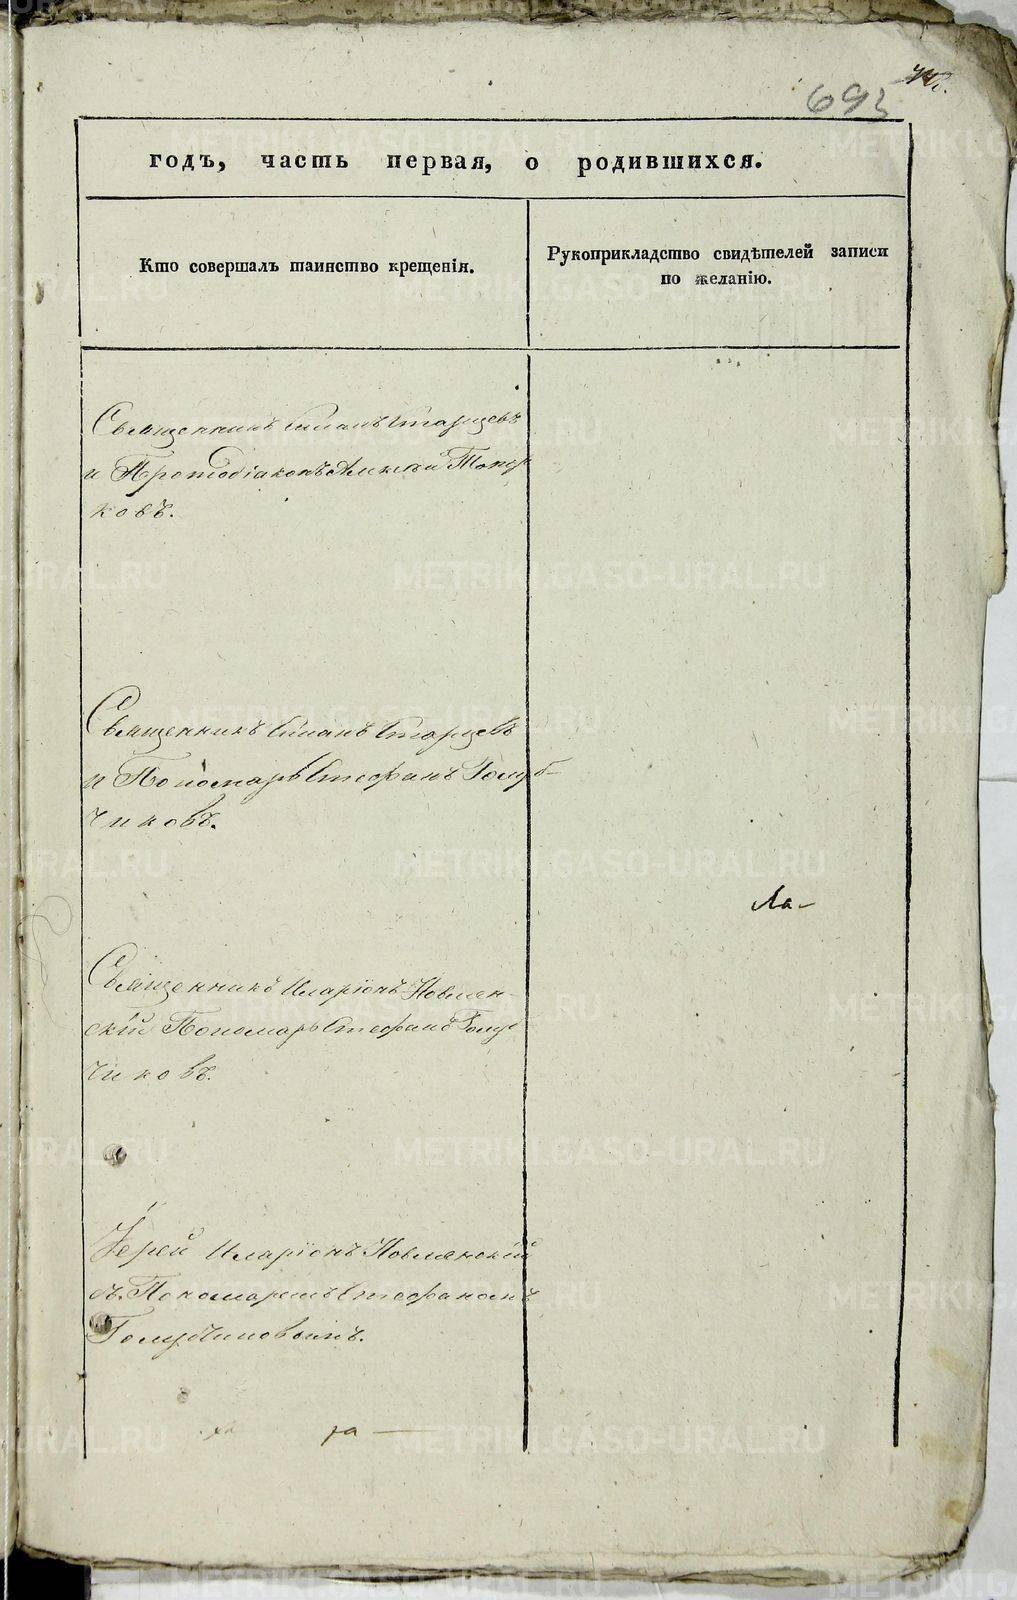 693
годъ, часть первая, о родившихся.
Кто совершалъ таинство крещенія.
Рукоприкладство свидѣтелей записи
по желанію.
Священникъ Стефанъ Старцевъ
и Протодіаконъ Алексѣй Топор
ковъ.
Священникъ Стефанъ Старцевъ
и Пономарь Стефанъ Голуб-
чиковъ.
Ла-
Священникъ Иларіонъ Новлян-
скій Пономарь Стефанъ Голуб
чиковъ.
Іерей Иларіонъ Новлянскій
съ Пономаремъ Стефаномъ
Голубчиковымъ.
ра
METRIKI.GASO-URAL.RU